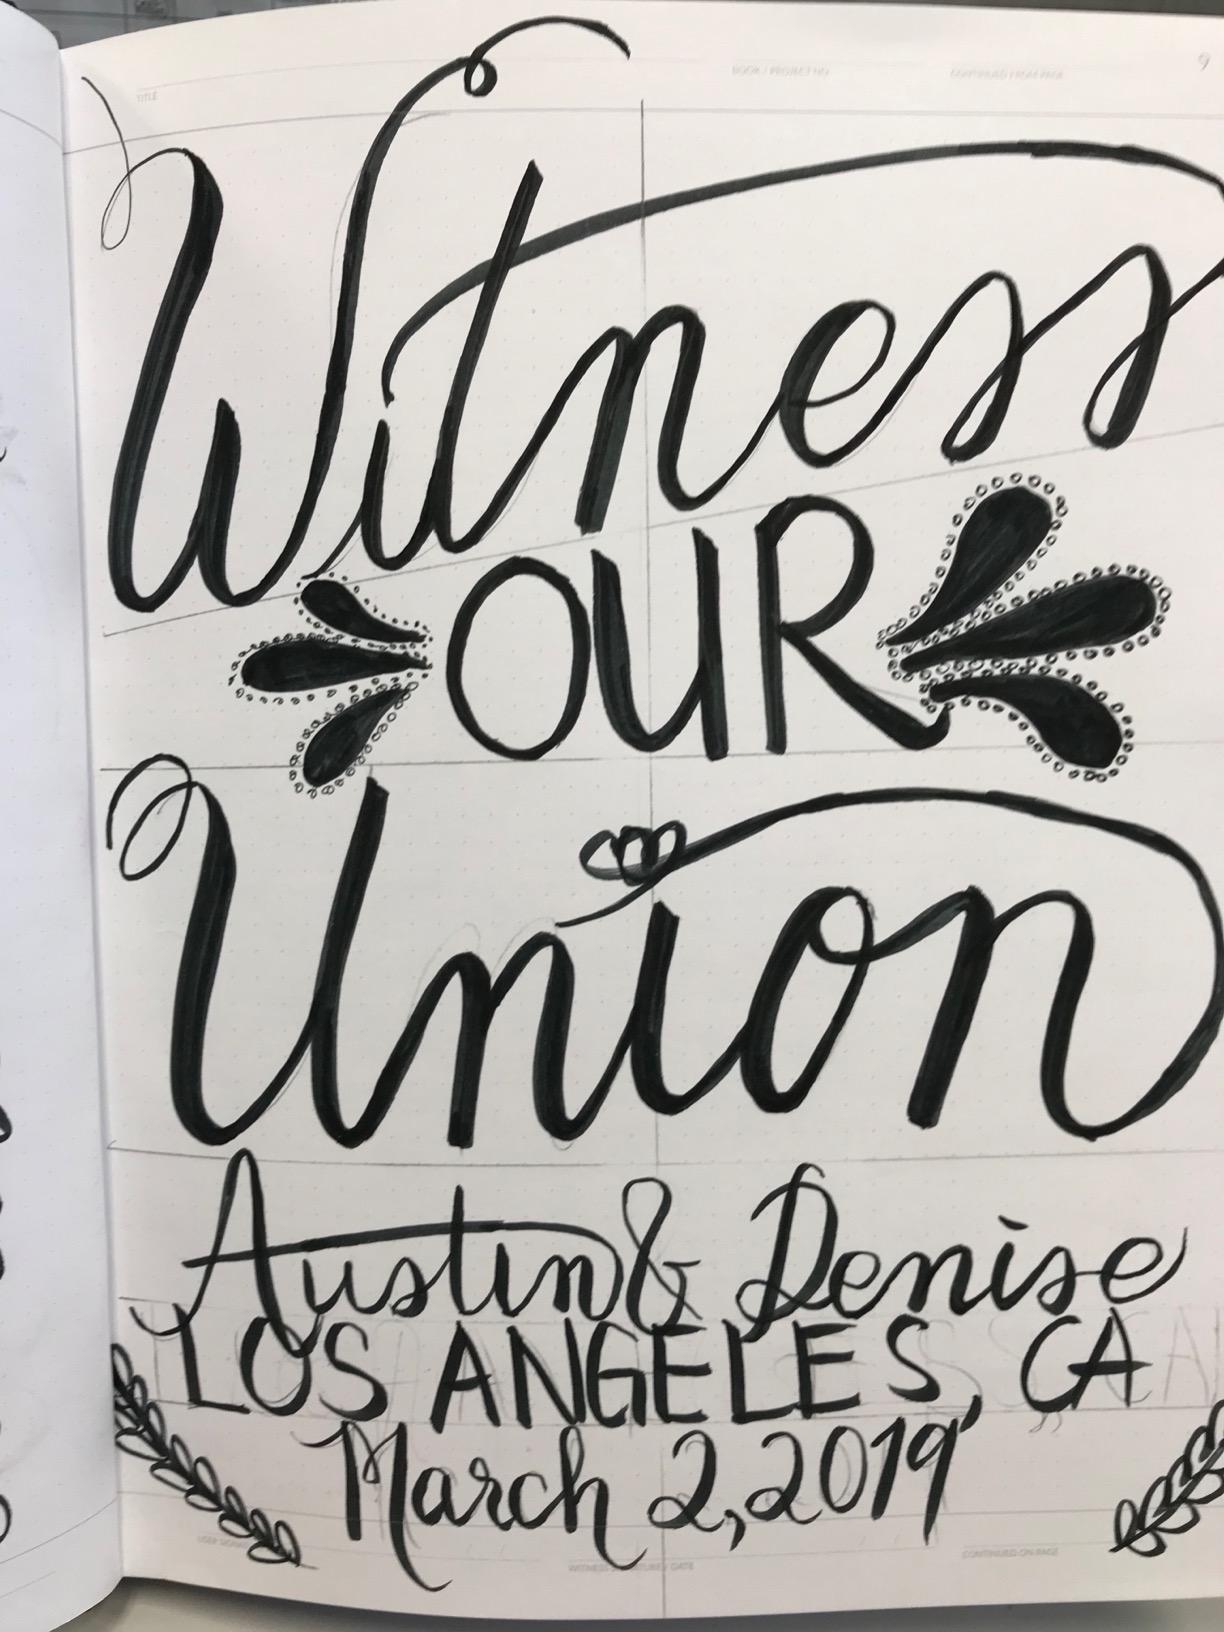 TITLE
BOOK / PROJECT NO.
CONTINUED FROM PAGE
9
Witness
OUR
Union
Austin & Denise
LOS ANGELES, CA
March 2, 2019
CONTINUED ON PAGE